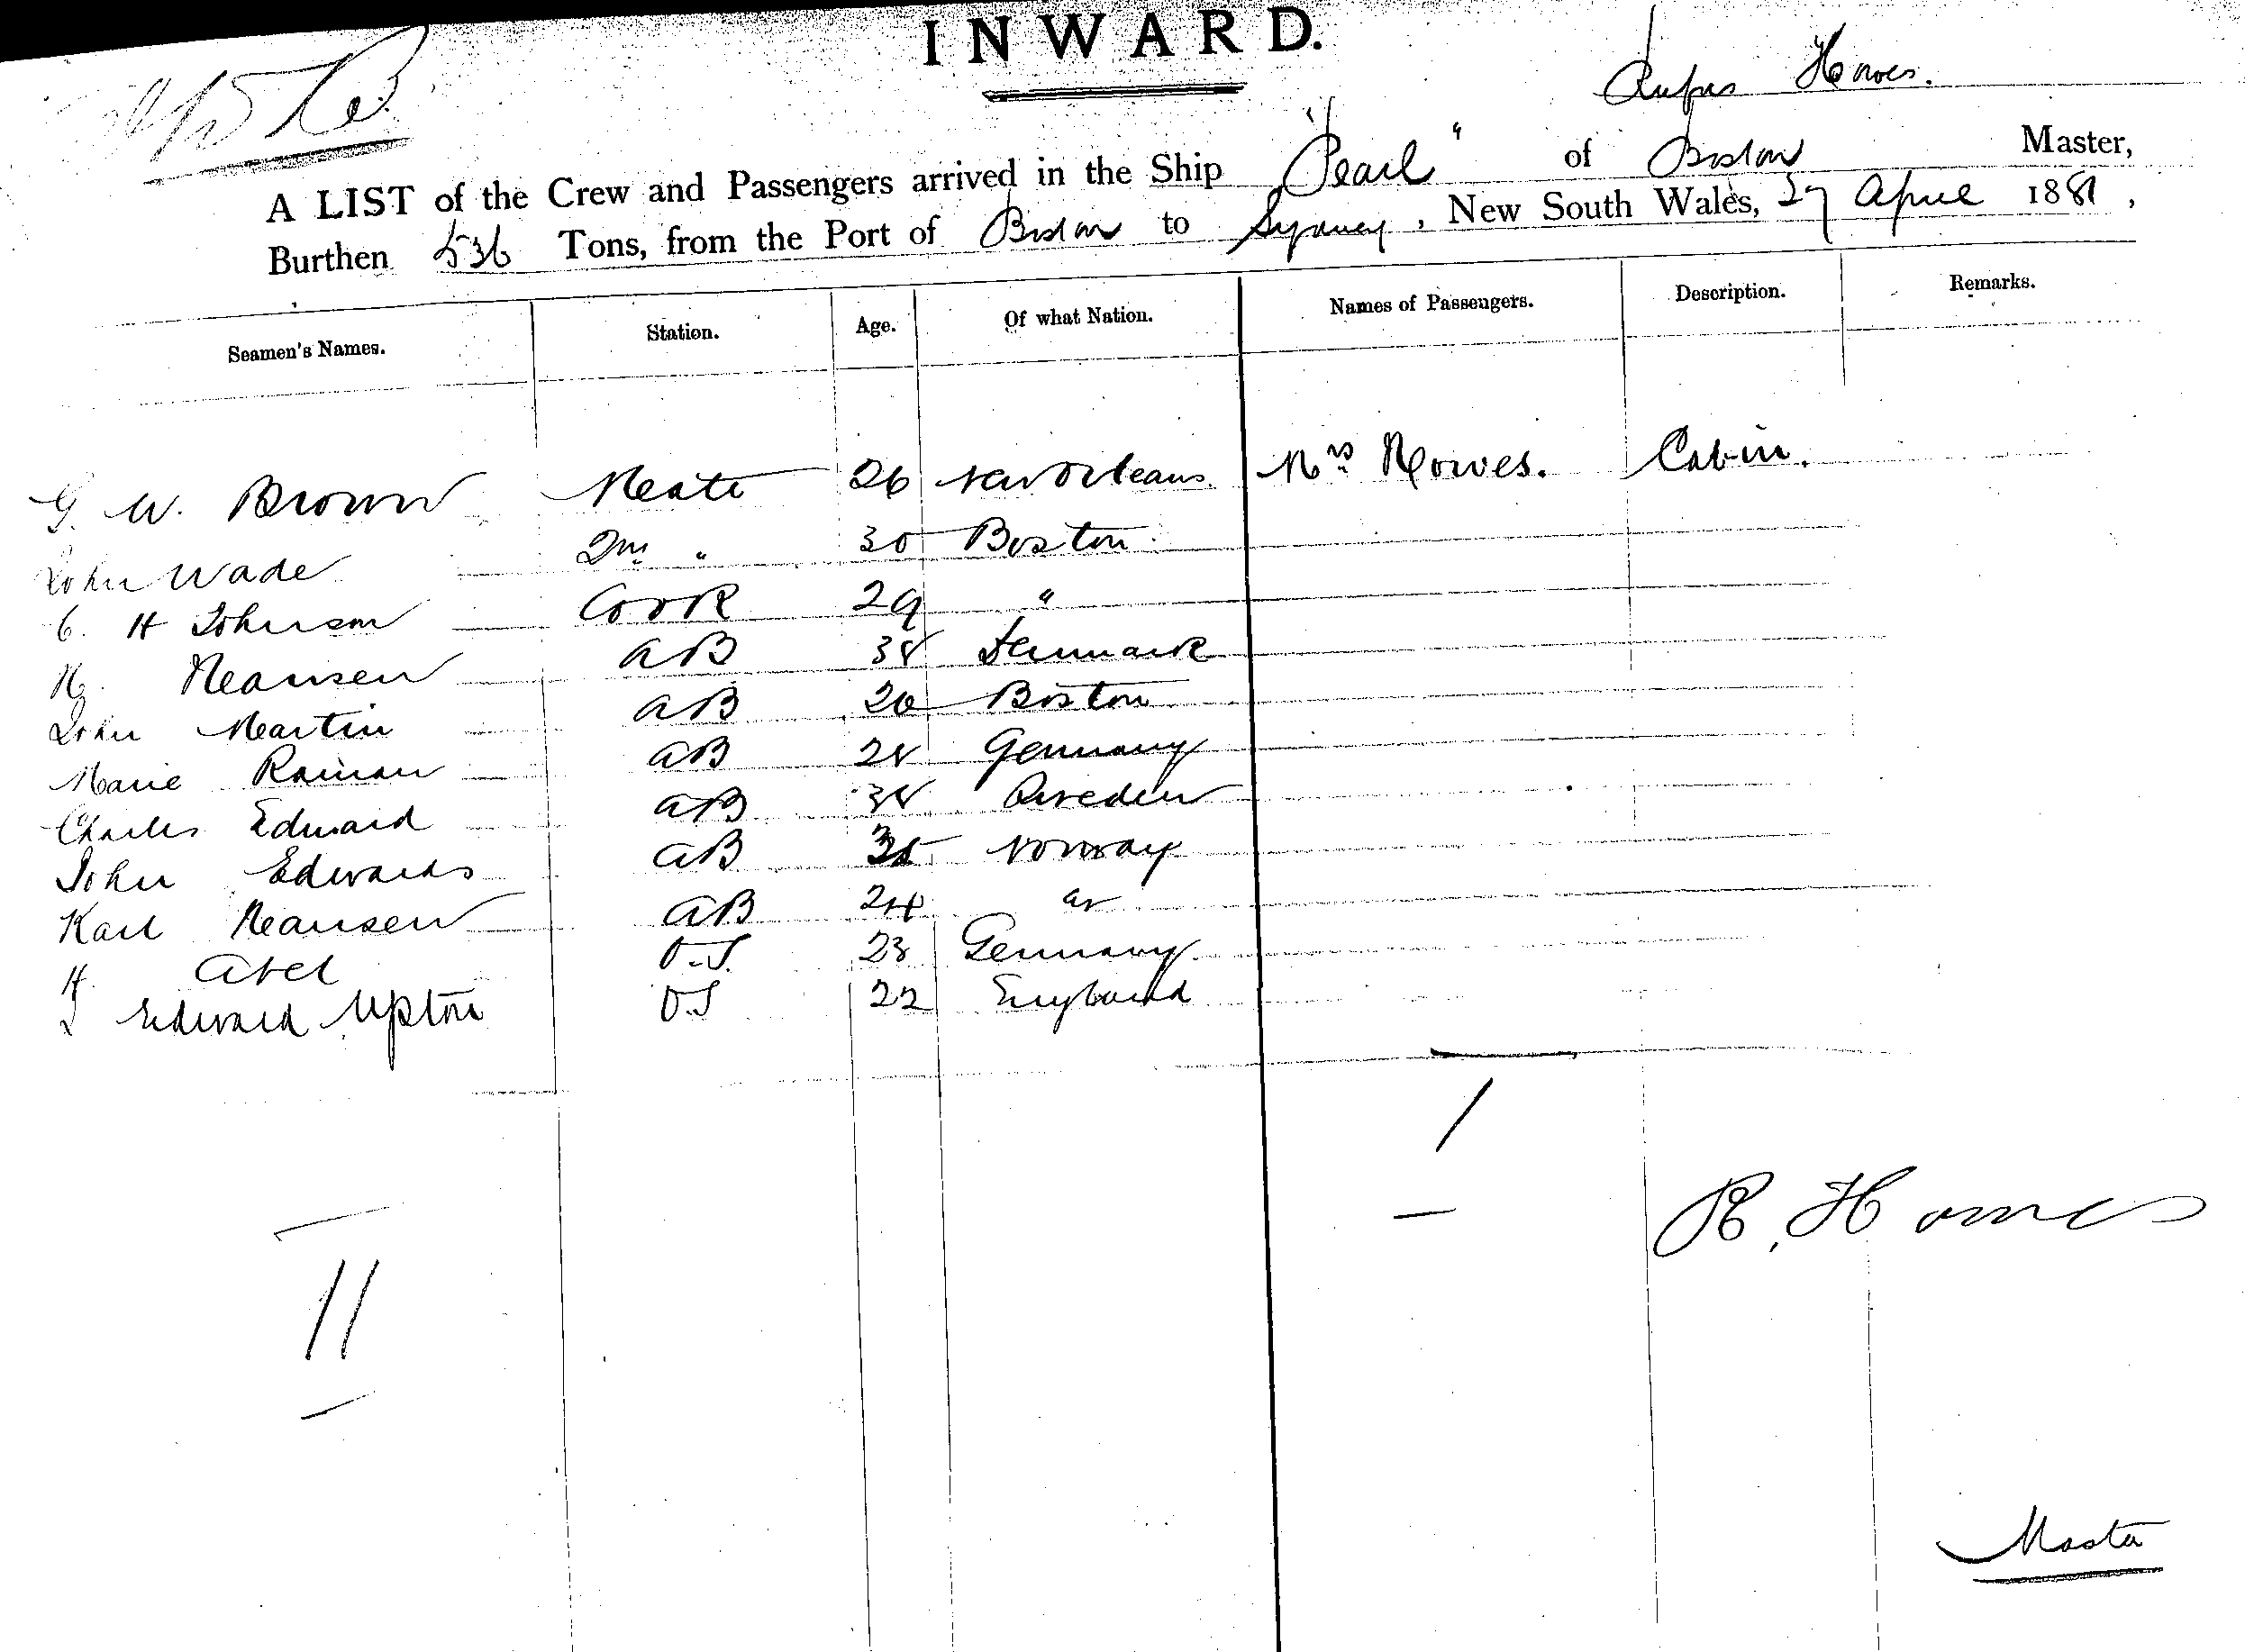 INWARD.
Rufus Howes.
A LIST of the Crew and Passengers arrived in the Ship "Pearl" of Boston Master,
Burthen 536 Tons, from the Port of Boston to Sydney, New South Wales, 27 April 1881,
Seamen's Names. Station. Age. Of what Nation. Names of Passengers. Description. Remarks.
G. W. Brown Mate 26 New Orleans. Mrs Howes. Cabin.
John Wade 2nd " 30 Boston
C. H Johnson Cook 29 "
H. Hansen AB 38 Denmark
John Martin AB 26 Boston
Marie AB 28 Germany
Charles Edward AB 38 Sweden
John Edwards AB 35 Norway
Karl Hansen AB 24 "
H. Abel O.S. 23 Germany
J Edward Upton O.S 22 England
1
R. Howes
11
Master